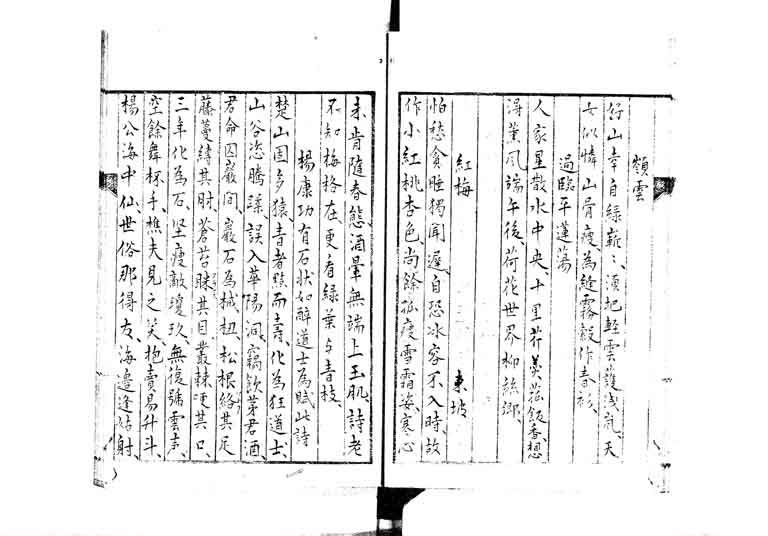 嶺雲
好山幸自綠嶄〻、須把輕雲護淺嵐、天
女似憐山骨瘦、為縫霧縠作春衫、
過臨平蓮蕩
人家星散水中央、十里芹羹菰飯香、想
得薰風端午後、荷花世界柳絲鄉、
紅梅　東坡
怕愁貪睡獨開遲、自恐冰容不入時、故
作小紅桃杏色、尚餘孤瘦雪霜姿、寒心
未肯隨春態、酒暈無端上玉肌、詩老
不知梅格在、更看綠葉与青枝、
楊康功有石狀如醉道士為賦此詩
楚山固多猿、青者黠而壽、化為狂道士、
山谷恣騰蹂、誤入華陽洞、竊飲茅君酒、
君命囚巖間、巖石為械杻、松根絡其足、
藤蔓縛其肘、蒼苔眯其目、叢棘哽其口、
三年化為石、堅瘦敵瓊玖、無復號雲聲、
空餘舞杯手、樵夫見之笑、抱賣易升斗、
楊公海中仙、世俗那得友、海邊逢姑射、